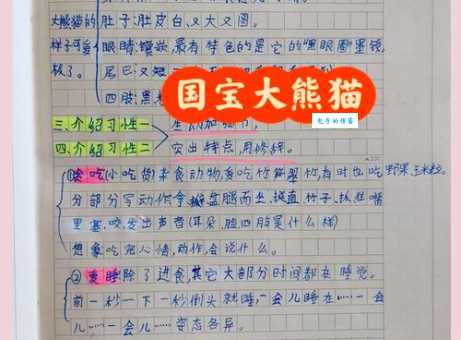 大熊猫的 肚子:肚皮白,又大又圆。
样子可爱 眼睛:镶嵌,最有特色的是它的"黑眼圈墨镜。
极了。 尾巴:又短
四肢:黑
国宝大熊猫
包子的博客
三.介绍习性一
四.介绍习性二 突出特点,用修辞。
①贪吃(小吃货)素食动物,喜吃竹笋翠竹,有时也吃野果、玉米粒。
部分写动作拿 盘腿而坐, 竹子, 嘴
里塞,咬发出声音(耳朵、脸四肢是什么样)
想象吃完人情,动作,会说什么。
②爱睡除了进食,其它大部分时间都在睡觉。
前一秒⋯下一秒倒头就睡,一会儿睡在⋯⋯一会
儿⋯⋯一会儿⋯⋯姿态各异。